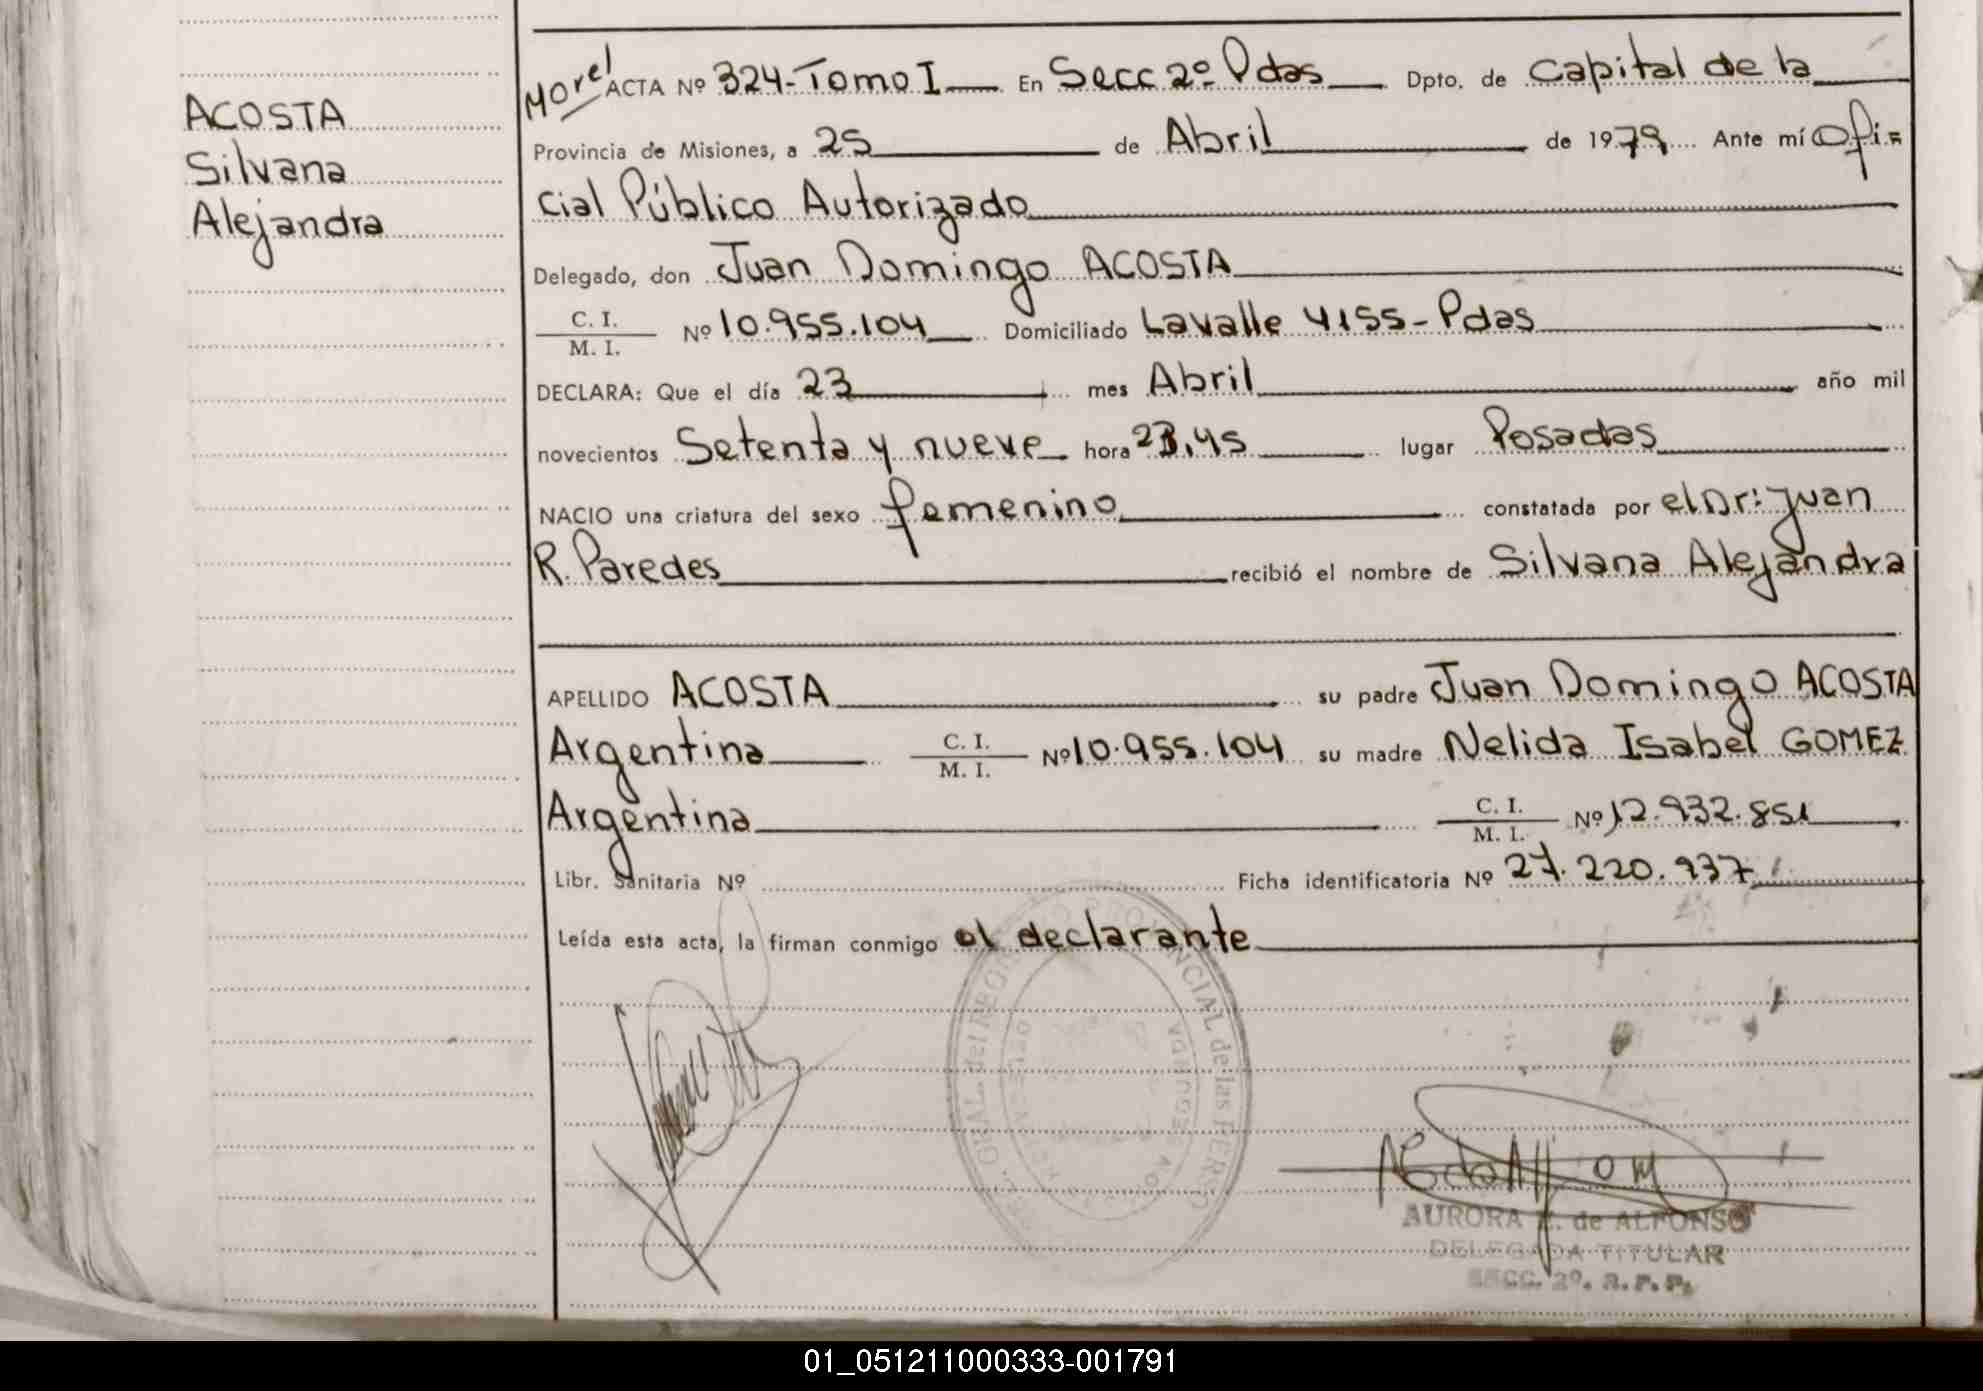 ACOSTA
Silvana
Alejandra
Morel ACTA Nº 324-Tomo I En Secc 2º Pdas Dpto. de Capital de la
Provincia de Misiones, a 25 de Abril de 1979 Ante mí Ofi=
cial Público Autorizado
Delegado, don Juan Domingo ACOSTA
C. I.
M. I. Nº 10.955.104 Domiciliado Lavalle 4155-Pdas
DECLARA: Que el día 23 mes Abril año mil
novecientos Setenta y nueve hora 23,45 lugar Posadas
NACIO una criatura del sexo femenino constatada por el Dr: Juan
R. Paredes recibió el nombre de Silvana Alejandra
APELLIDO ACOSTA su padre Juan Domingo ACOSTA
Argentina C. I.
M. I. Nº 10.955.104 su madre Nelida Isabel GOMEZ
Argentina C. I.
M. I. Nº 12.932.851
Libr. Sanitaria Nº Ficha identificatoria Nº 27.220.937
Leída esta acta, la firman conmigo el declarante
PROVINCIAL de las PERSO
AURORA de ALFONSO
DELEGADA TITULAR
SECC. 2º. R. P. P.
01_051211000333-001791